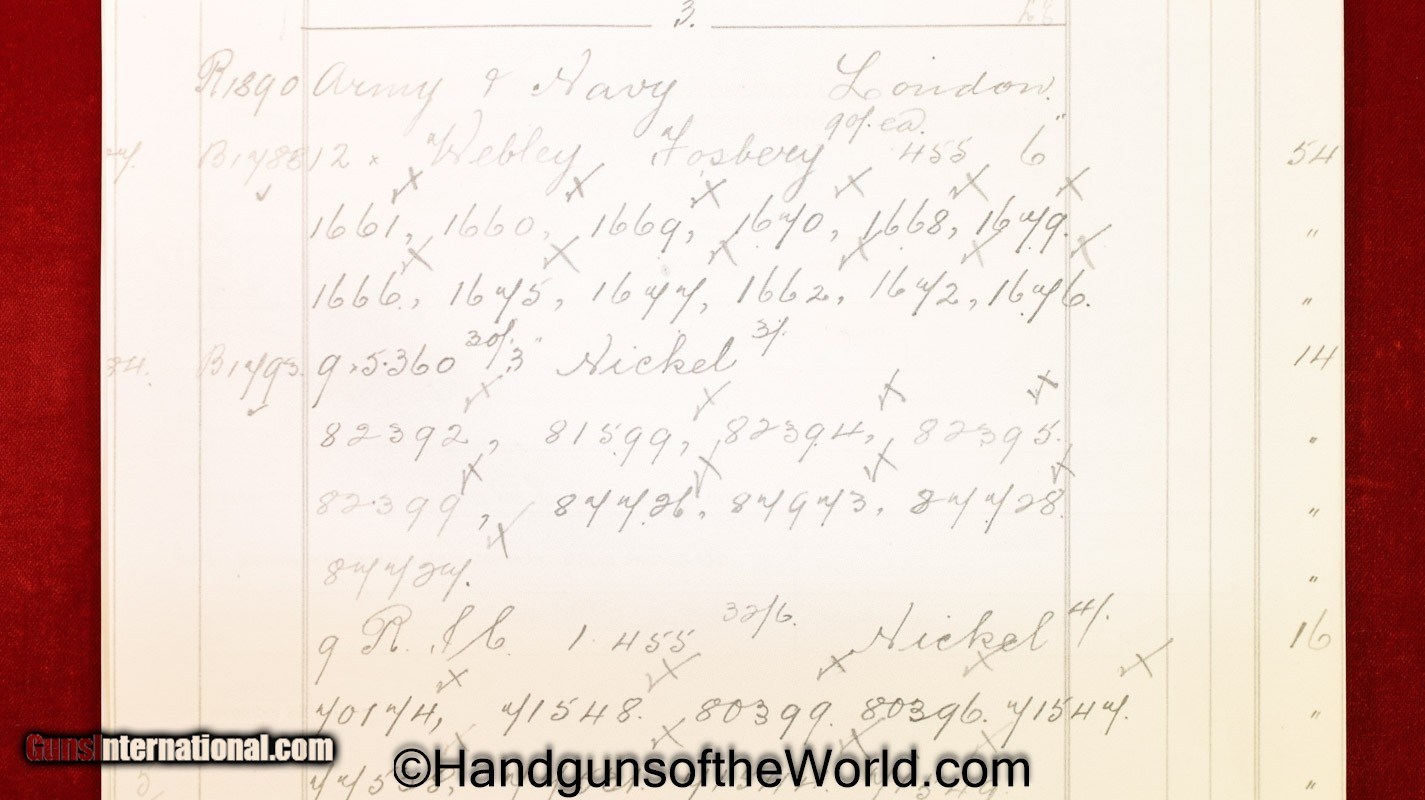 3.
R1890 Army & Navy London.
90/. ea.
B1788 12 × Webley Fosbery 455 6" 54
1661, 1660, 1669, 1670, 1668, 1679. "
1666, 1675, 1677, 1662, 1672, 1676. "
30/. 3/.
B1793 9 . 5.360 3" Nickel 14
82392, 81599, 82394, 82395. "
82399, 87726, 87973, 87728. "
87727. "
32/6. 4/.
9 R. I C. 1. 455 Nickel 16
70174, 71548. 80399. 80396. 71547. "
"
GunsInternational.com
©HandgunsoftheWorld.com